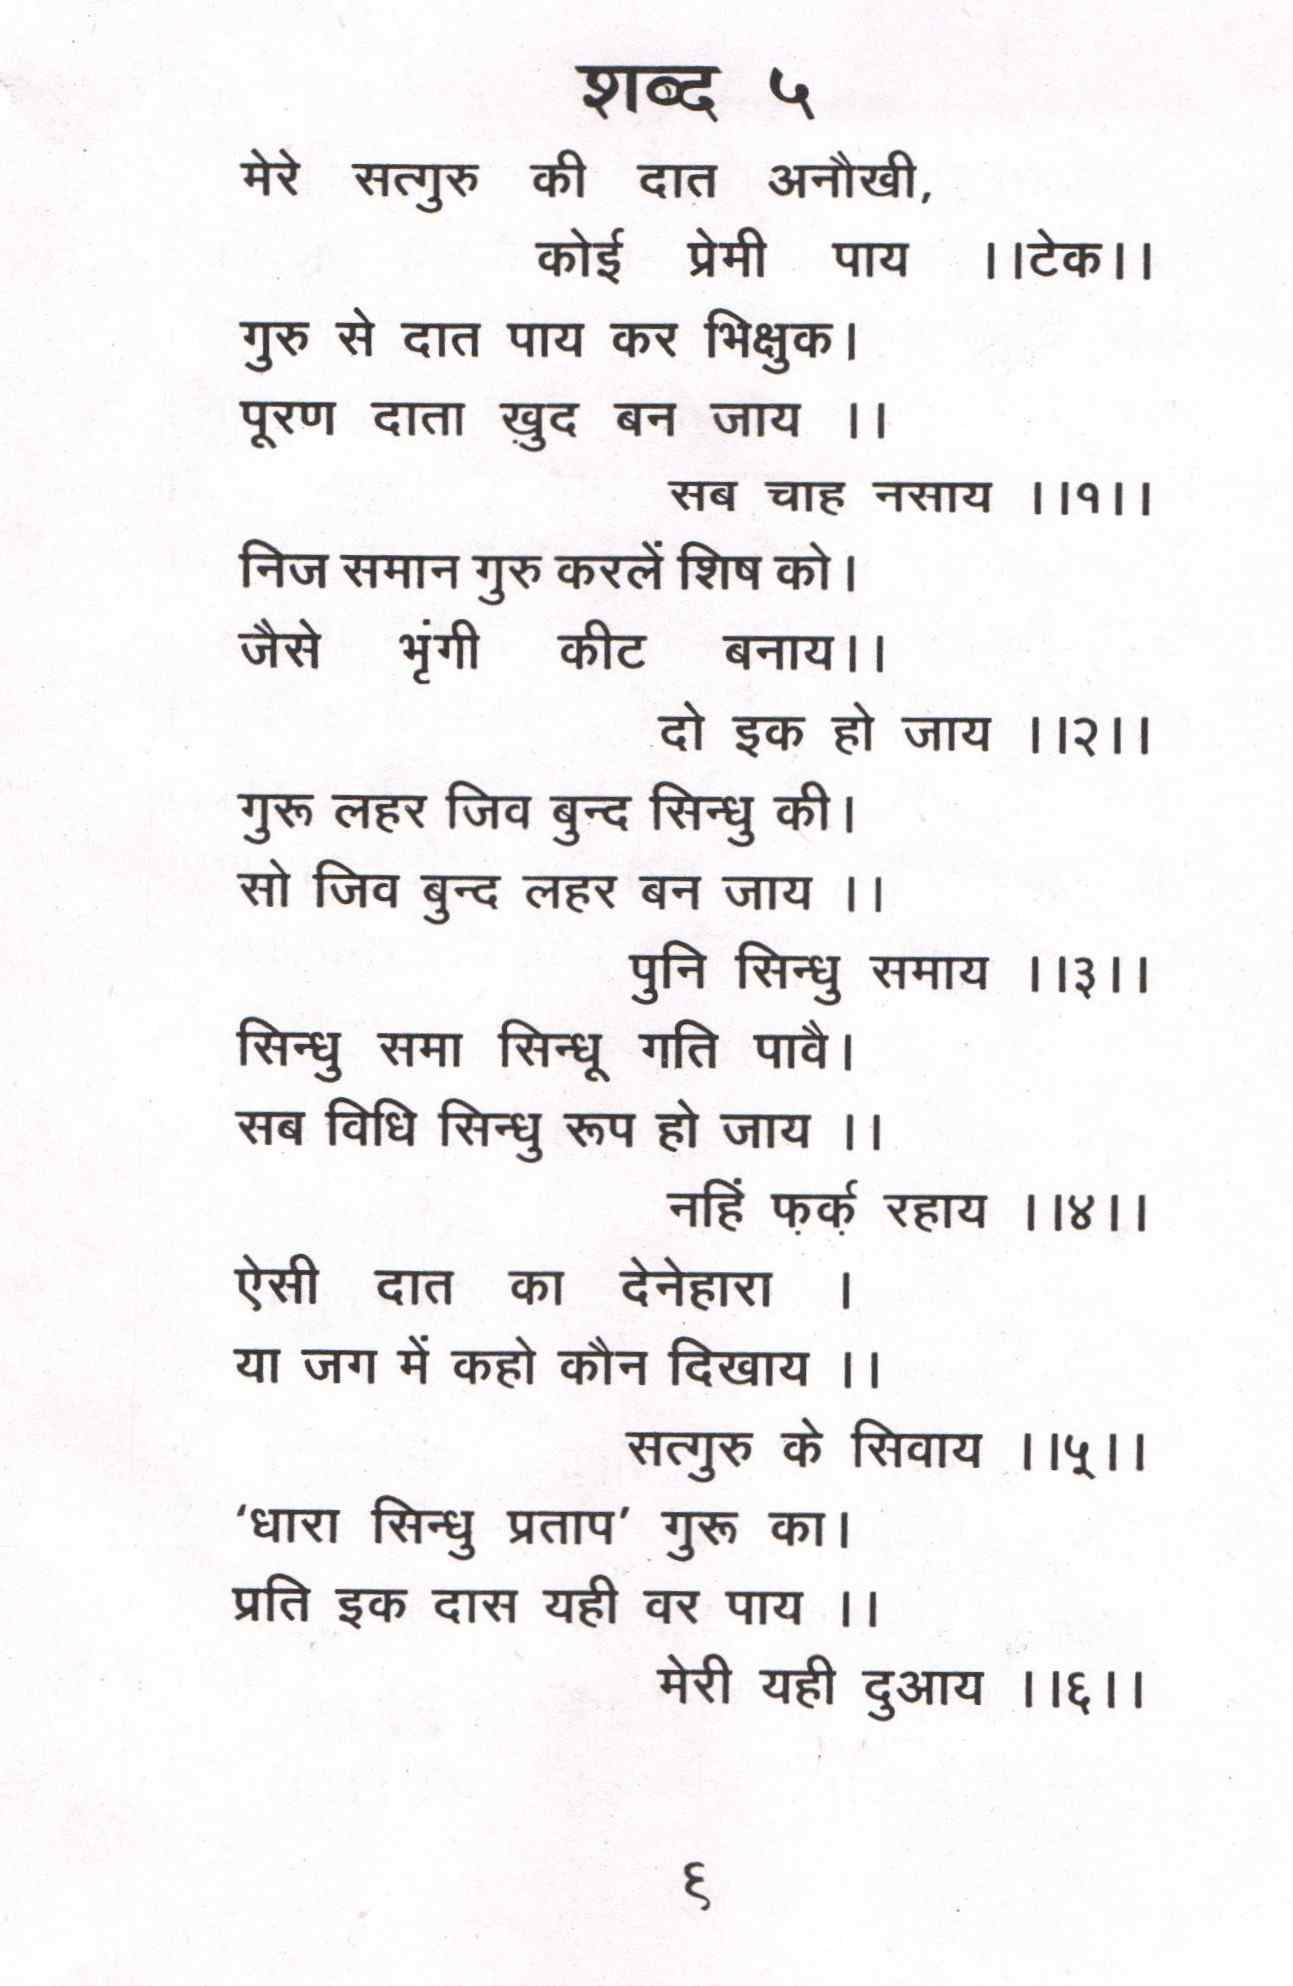 शब्द ५
मेरे सत्गुरु की दात अनौखी,
कोई प्रेमी पाय ।।टेक।।
गुरु से दात पाय कर भिक्षुक।
पूरण दाता ख़ुद बन जाय ।।
सब चाह नसाय ।।१।।
निज समान गुरु करलें शिष को।
जैसे भृंगी कीट बनाय।।
दो इक हो जाय ।।२।।
गुरू लहर जिव बुन्द सिन्धु की।
सो जिव बुन्द लहर बन जाय ।।
पुनि सिन्धु समाय ।।३।।
सिन्धु समा सिन्धू गति पावै।
सब विधि सिन्धु रूप हो जाय ।।
नहिं फ़र्क़ रहाय ।।४।।
ऐसी दात का देनेहारा ।
या जग में कहो कौन दिखाय ।।
सत्गुरु के सिवाय ।।५।।
‘धारा सिन्धु प्रताप’ गुरू का।
प्रति इक दास यही वर पाय ।।
मेरी यही दुआय ।।६।।
६